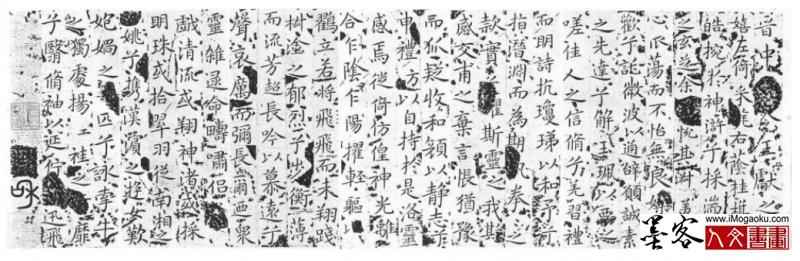 晉中王獻之
嬉左倚采旄右蔭桂旗
皓捥於神滸兮採湍
之玄芝余悅其淑
心振蕩而不怡無良媒
歡兮託微波以通辭願誠素
之先達兮解玉珮而要之
嗟佳人之信脩兮羌習禮
而明詩抗瓊珶以和予兮
指潛淵而為期執拳之
款實兮懼斯靈之我欺
感交甫之棄言悵猶豫
而狐疑收和顏以靜志兮
申禮防以自持於是洛靈
感焉徙倚彷徨神光離
合乍陰乍陽擢輕軀以
鶴立若將飛而未翔踐
椒塗之郁烈兮步蘅薄
而流芳超長吟以慕遠兮
聲哀厲而彌長爾迺眾
靈雜遝命疇嘯侶或
戲清流或翔神渚或採
明珠或拾翠羽從南湘之
二姚兮攜漢濱之游女歎
媧之匹兮詠牽牛
之獨處揚輕袿之靡
兮翳脩袖以延佇迅飛
www.iMogaoku.com
墨客
人文書畫